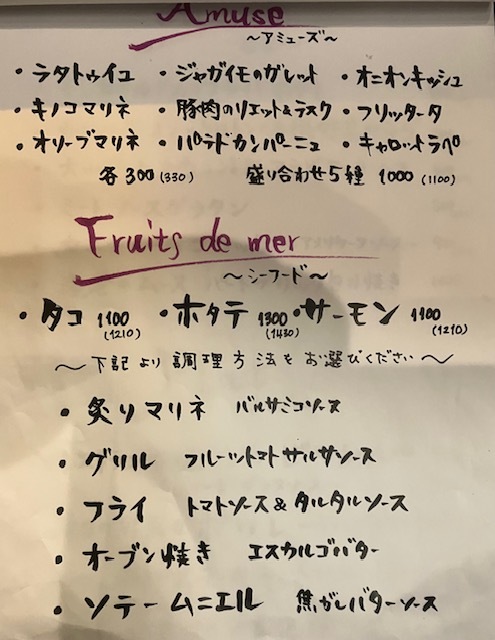 Amuse
~アミューズ~
・ラタトゥイユ ・ジャガイモのガレット ・オニオンキッシュ
・キノコマリネ ・豚肉のリエット&ラスク ・フリッタータ
・オリーブマリネ ・パテドカンパーニュ ・キャロットラペ
各300(330) 盛り合わせ5種 1000(1100)
Fruits de mer
~シーフード~
・タコ 1100(1210) ・ホタテ 1300(1430) ・サーモン 1100(1210)
~下記より調理方法をお選びください~
・炙りマリネ バルサミコソース
・グリル フルーツトマトサルサソース
・フライ トマトソース&タルタルソース
・オーブン焼き エスカルゴバター
・ソテームニエル 焦がしバターソース